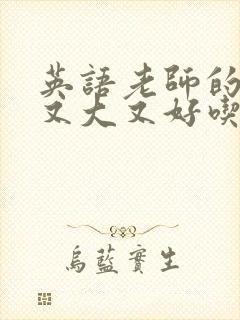 英語老師的
又大又好喫
烏藍實生